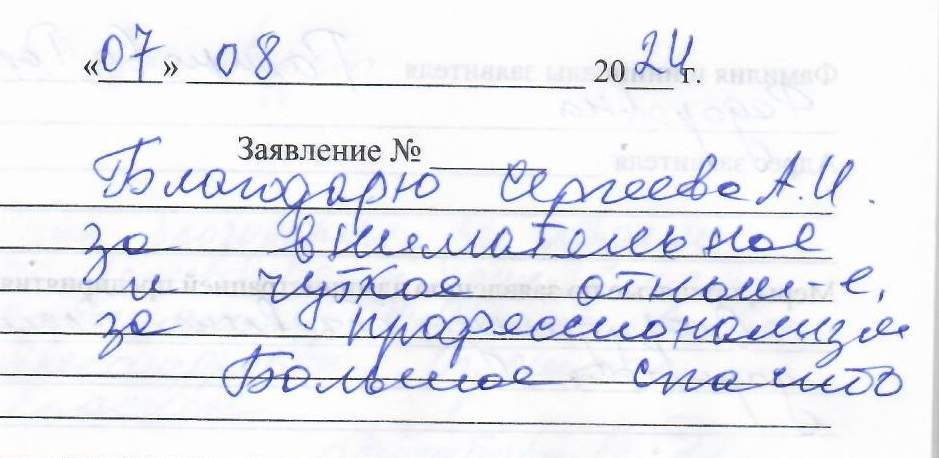 «07» 08 2024 г.
Заявление №
Благодарю Сергеева А.И.
за внимательное
и чуткое отноше,
за профессионализм
Большое спасибо